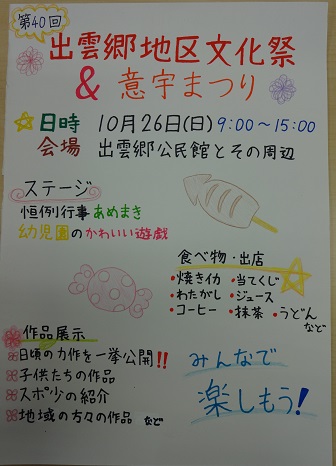 第40回
出雲郷地区文化祭
& 意宇まつり
日時 10月26日(日) 9:00～15:00
会場 出雲郷公民館とその周辺
ステージ
恒例行事あめまき
幼児園のかわいい遊戯
食べ物・出店
・焼きイカ ・当てくじ
・わたがし ・ジュース
・コーヒー ・抹茶 ・うどん
など
作品展示
日頃の力作を一挙公開!!
子供たちの作品
スポ少の紹介
地域の方々の作品 など
みんなで
楽しもう!